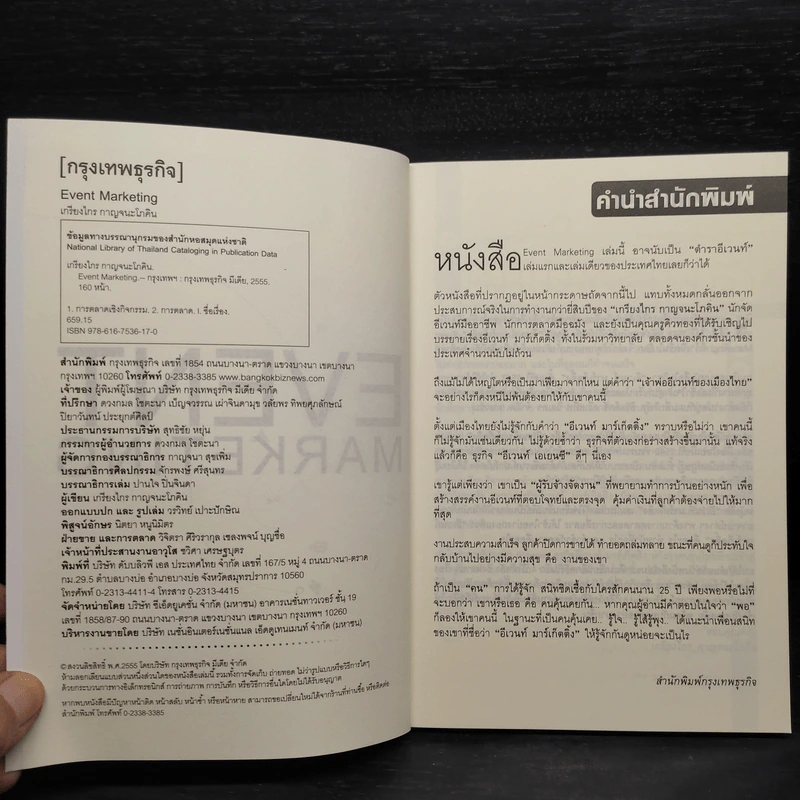 [กรุงเทพธุรกิจ]
Event Marketing
เกรียงไกร กาญจนะโภคิน
ข้อมูลทางบรรณานุกรมของสำนักหอสมุดแห่งชาติ
National Library of Thailand Cataloging in Publication Data
เกรียงไกร กาญจนะโภคิน.
Event Marketing.-- กรุงเทพฯ : กรุงเทพธุรกิจ มีเดีย, 2555.
160 หน้า.
1. การตลาดเชิงกิจกรรม. 2. การตลาด. I. ชื่อเรื่อง.
659.15
ISBN 978-616-7536-17-0
สำนักพิมพ์ กรุงเทพธุรกิจ เลขที่ 1854 ถนนบางนา-ตราด แขวงบางนา เขตบางนา
กรุงเทพฯ 10260 โทรศัพท์ 0-2338-3385 www.bangkokbiznews.com
เจ้าของ ผู้พิมพ์ผู้โฆษณา บริษัท กรุงเทพธุรกิจ มีเดีย จำกัด
ที่ปรึกษา ดวงกมล โชตะนา เบ็ญจวรรณ เผ่าจินดามุข วลัยพร ทิพยศุภลักษณ์
ปิยาวันทน์ ประยุกต์ศิลป์
ประธานกรรมการบริษัท สุทธิชัย หยุ่น
กรรมการผู้อำนวยการ ดวงกมล โชตะนา
ผู้จัดการกองบรรณาธิการ กาญจนา สุขเพิ่ม
บรรณาธิการศิลปกรรม จักรพงษ์ ศรีสุนทร
บรรณาธิการเล่ม ปานใจ ปิ่นจินดา
ผู้เขียน เกรียงไกร กาญจนะโภคิน
ออกแบบปก และ รูปเล่ม วรวิทย์ เปาะปักษิณ
พิสูจน์อักษร นิตยา หนูนิมิตร
ฝ่ายขาย และการตลาด วิจิตรา ศิริวรากุล เชลงพจน์ บุญซื่อ
เจ้าหน้าที่ประสานงานอาวุโส ชวิศา เศรษฐบุตร
พิมพ์ที่ บริษัท คับบลิวพี เอส ประเทศไทย จำกัด เลขที่ 167/5 หมู่ 4 ถนนบางนา-ตราด
กม.29.5 ตำบลบางบ่อ อำเภอบางบ่อ จังหวัดสมุทรปราการ 10560
โทรศัพท์ 0-2313-4411-4 โทรสาร 0-2313-4415
จัดจำหน่ายโดย บริษัท ซีเอ็ดยูเคชั่น จำกัด (มหาชน) อาคารเนชั่นทาวเวอร์ ชั้น 19
เลขที่ 1858/87-90 ถนนบางนา-ตราด แขวงบางนา เขตบางนา กรุงเทพฯ 10260
บริหารงานขายโดย บริษัท เนชั่นอินเตอร์เนชั่นแนล เอ็ดดูเทนเมนท์ จำกัด (มหาชน)
©สงวนลิขสิทธิ์ พ.ศ.2555 โดยบริษัท กรุงเทพธุรกิจ มีเดีย จำกัด
ห้ามลอกเลียนแบบส่วนหนึ่งส่วนใดของหนังสือเล่มนี้ รวมทั้งการจัดเก็บ ถ่ายทอด ไม่ว่ารูปแบบหรือวิธีการใดๆ
ด้วยกระบวนการทางอิเล็กทรอนิกส์ การถ่ายภาพ การบันทึก หรือวิธีการอื่นใดโดยไม่ได้รับอนุญาต
หากพบหนังสือมีปัญหาหน้าติด หน้าสลับ หน้าซ้ำ หรือหน้าหาย สามารถขอเปลี่ยนใหม่ได้จากร้านที่ท่านซื้อ หรือติดต่อ
สำนักพิมพ์ โทรศัพท์ 0-2338-3385
คำนำสำนักพิมพ์
หนังสือ Event Marketing เล่มนี้ อาจนับเป็น “ตำราอีเวนท์”
เล่มแรกและเล่มเดียวของประเทศไทยเลยก็ว่าได้
ตัวหนังสือที่ปรากฏอยู่ในหน้ากระดาษถัดจากนี้ไป แทบทั้งหมดกลั่นออกจาก
ประสบการณ์จริงในการทำงานกว่ายี่สิบปีของ “เกรียงไกร กาญจนะโภคิน” นักจัด
อีเวนท์มืออาชีพ นักการตลาดมือฉมัง และยังเป็นคุณครูคิวทองที่ได้รับเชิญไป
บรรยายเรื่องอีเวนท์ มาร์เก็ตติ้ง ทั้งในรั้วมหาวิทยาลัย ตลอดจนองค์กรชั้นนำของ
ประเทศจำนวนนับไม่ถ้วน
ถึงแม้ไม่ได้ใหญ่โตหรือเป็นมาเฟียมาจากไหน แต่คำว่า “เจ้าพ่ออีเวนท์ของเมืองไทย”
จะอย่างไรก็คงหนีไม่พ้นต้องยกให้กับเขาคนนี้
ตั้งแต่เมืองไทยยังไม่รู้จักกับคำว่า “อีเวนท์ มาร์เก็ตติ้ง” ทราบหรือไม่ว่า เขาคนนี้
ก็ไม่รู้จักมันเช่นเดียวกัน ไม่รู้ด้วยซ้ำว่า ธุรกิจที่ตัวเองก่อร่างสร้างขึ้นมานั้น แท้จริง
แล้วก็คือ ธุรกิจ “อีเวนท์ เอเยนซี” ดีๆ นี่เอง
เขารู้แต่เพียงว่า เขาเป็น “ผู้รับจ้างจัดงาน” ที่พยายามทำการบ้านอย่างหนัก เพื่อ
สร้างสรรค์งานอีเวนท์ที่ตอบโจทย์และตรงจุด คุ้มค่าเงินที่ลูกค้าต้องจ่ายไปให้มาก
ที่สุด
งานประสบความสำเร็จ ลูกค้าปิดการขายได้ ทำยอดถล่มทลาย ขณะที่คนดูก็ประทับใจ
กลับบ้านไปอย่างมีความสุข คือ งานของเขา
ถ้าเป็น “คน” การได้รู้จัก สนิทชิดเชื้อกับใครสักคนนาน 25 ปี เพียงพอหรือไม่ที่
จะบอกว่า เขาหรือเธอ คือ คนคุ้นเคยกัน... หากคุณผู้อ่านมีคำตอบในใจว่า “พอ”
ก็ลองให้เขาคนนี้ ในฐานะที่เป็นคนคุ้นเคย.. รู้ใจ.. รู้ไส้รู้พุง.. ได้แนะนำเพื่อนสนิท
ของเขาที่ชื่อว่า “อีเวนท์ มาร์เก็ตติ้ง” ให้รู้จักกันดูหน่อยจะเป็นไร
สำนักพิมพ์กรุงเทพธุรกิจ